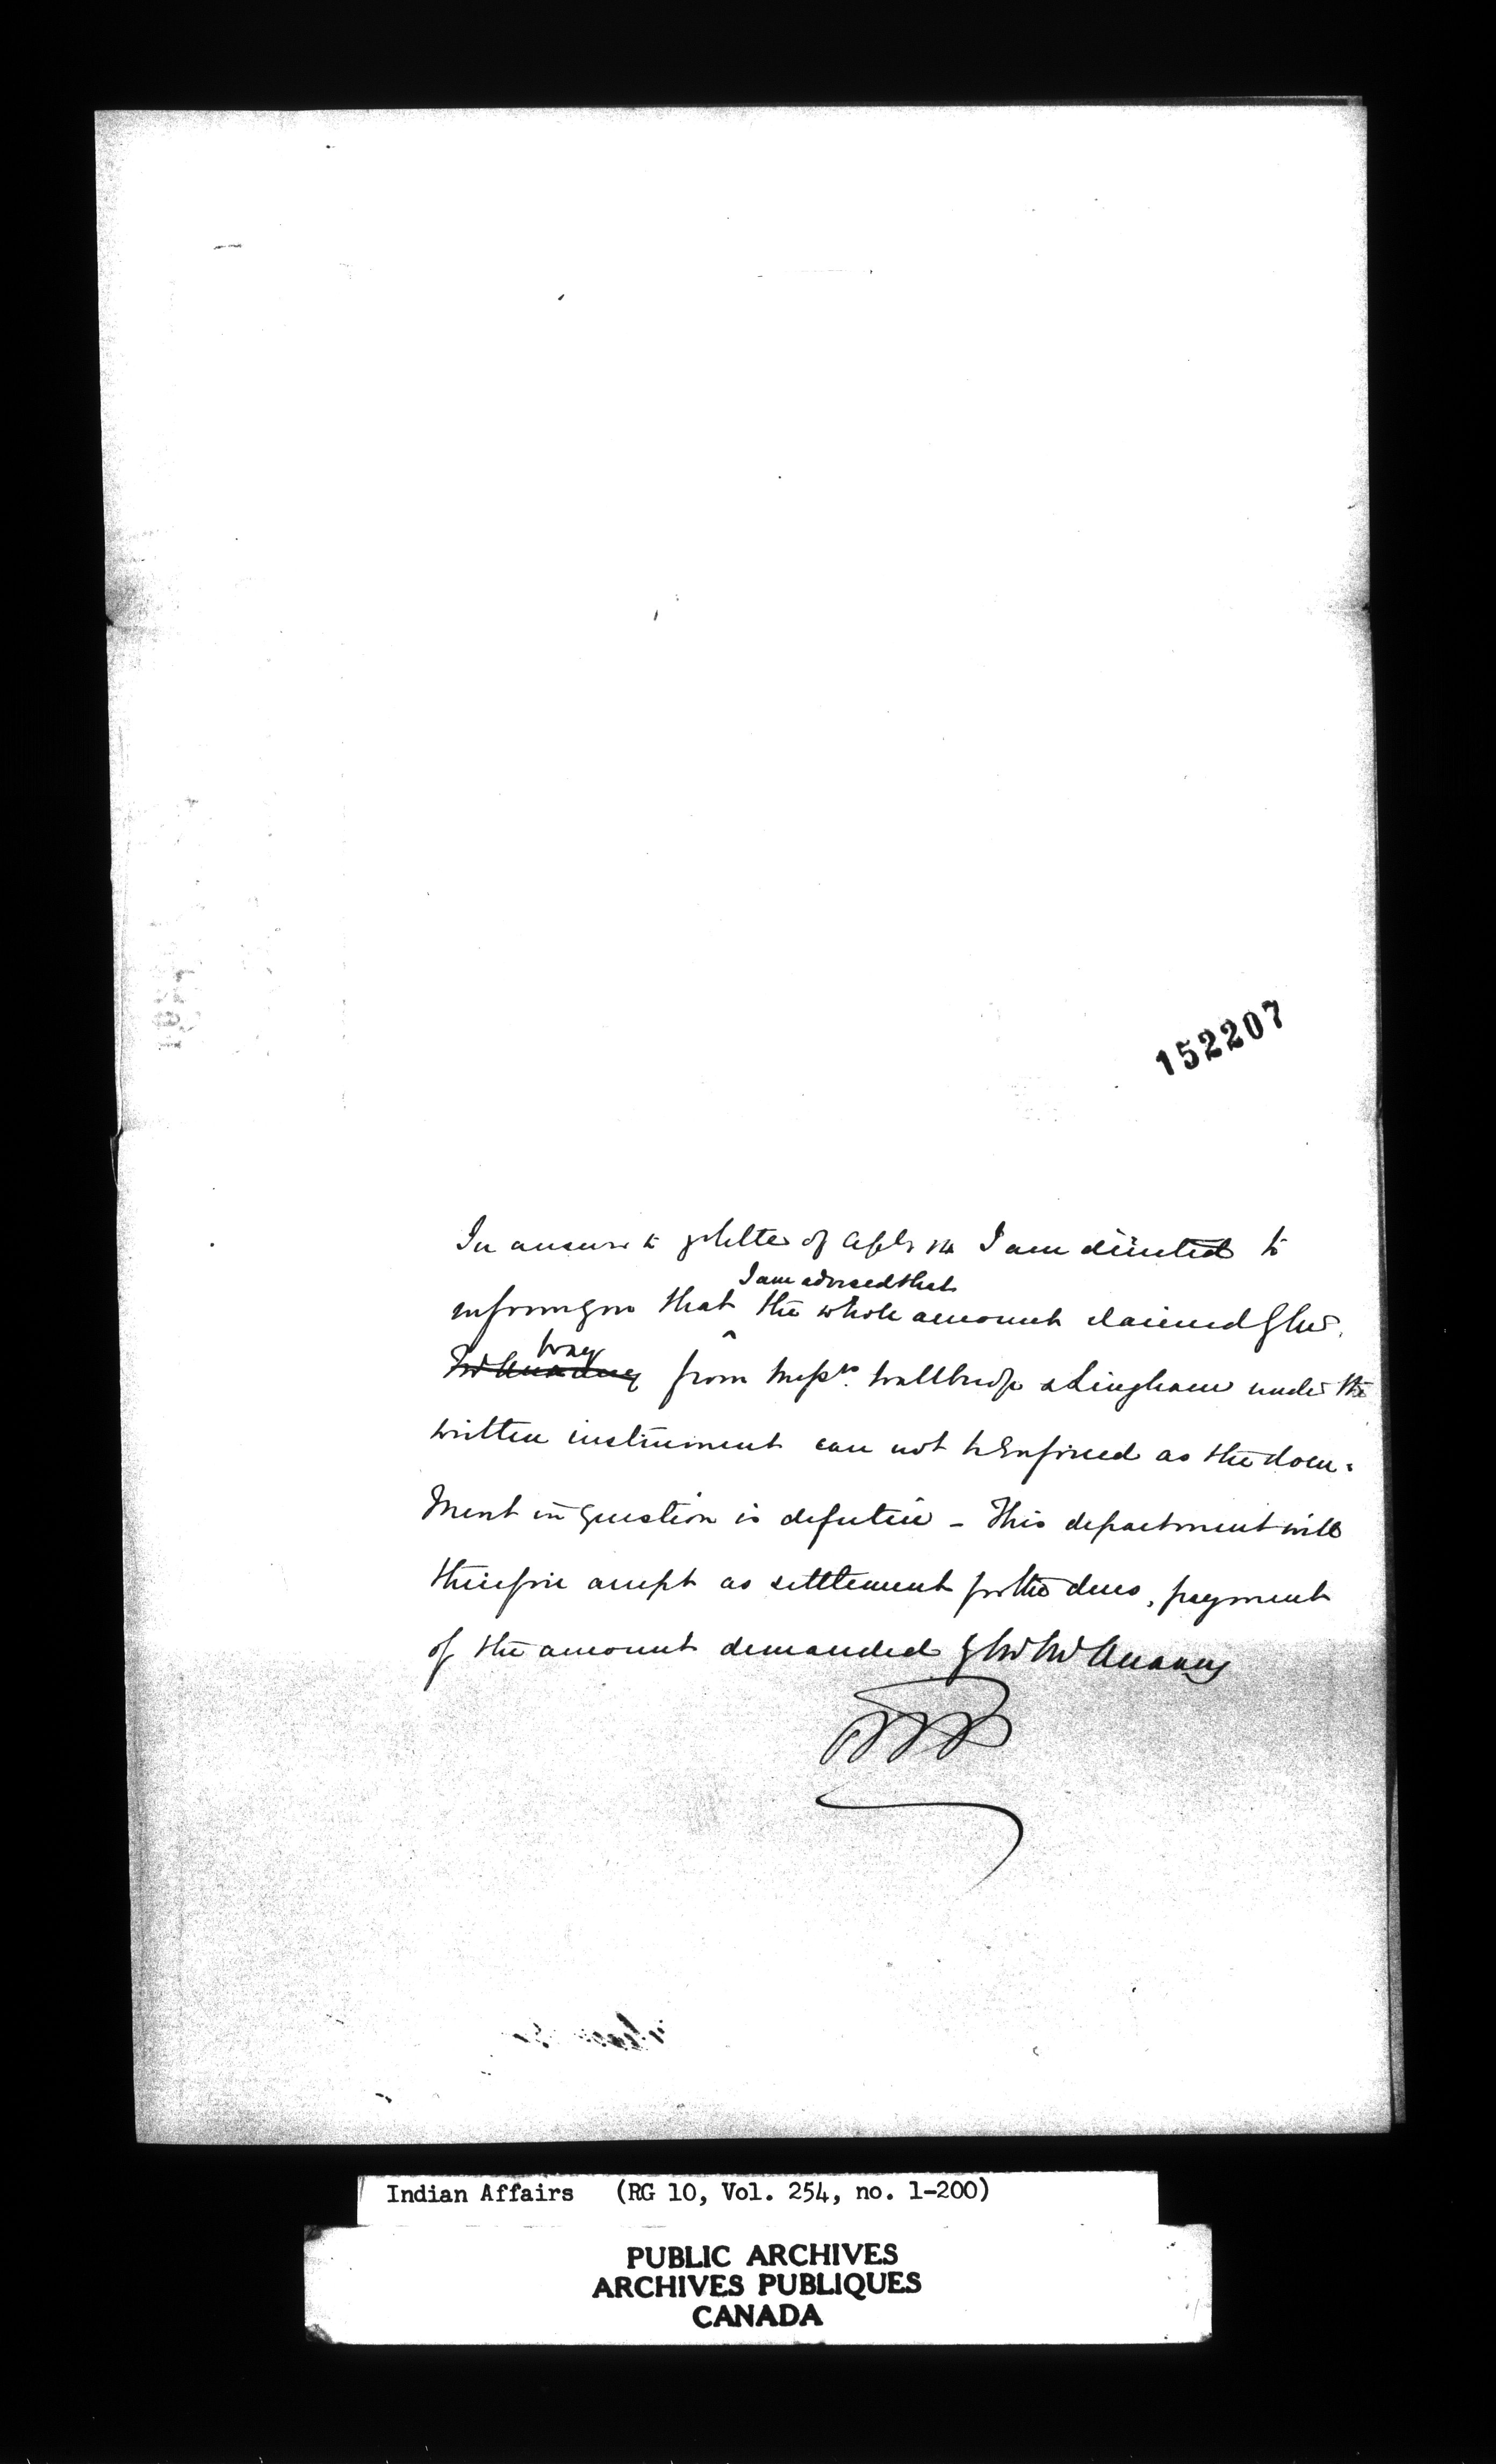 152207
In answer to yr letter of Apl 14 I am directed to
I am advised that
inform you that the whole amount claimed
from Messrs. Wallbridge & Lingham under the
written instrument can not be enforced as the docu-
ment in question is defective - This department will
therefore accept as settlement for the dues, payment
of the amount demanded
Indian Affairs (RG 10, Vol. 254, no. 1-200)
PUBLIC ARCHIVES
ARCHIVES PUBLIQUES
CANADA